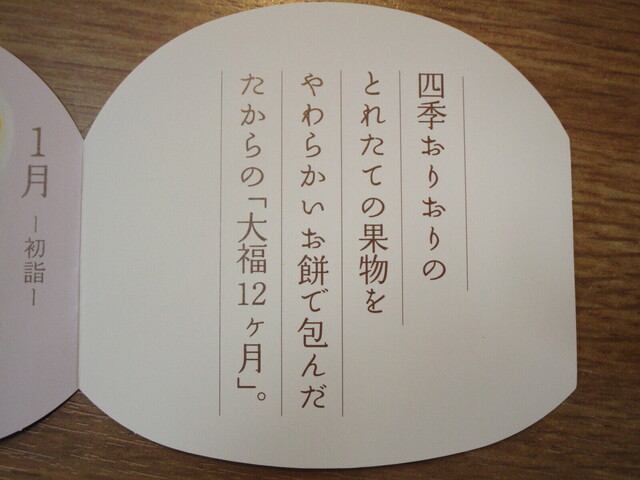 四季おりおりの
とれたての果物を
やわらかいお餅で包んだ
たからの「大福12ヶ月」。
1月
ー初詣ー